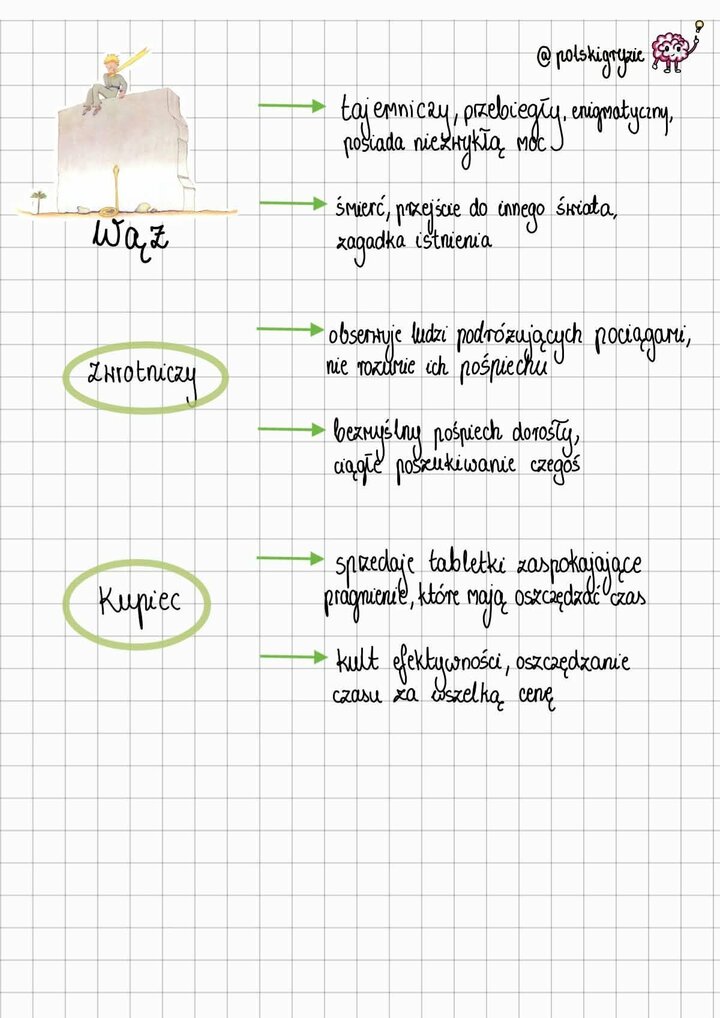 @polskigryzie
tajemniczy, przebiegły, enigmatyczny,
posiada niezwykłą moc
śmierć, przejście do innego świata,
zagadka istnienia
Wąż
obserwuje ludzi podróżujących pociągami,
nie rozumie ich pośpiechu
Zwrotniczy
bezmyślny pośpiech dorosły,
ciągłe poszukiwanie czegoś
sprzedaje tabletki zaspokajające
pragnienie, które mają oszczędzać czas
Kupiec
kult efektywności, oszczędzanie
czasu za wszelką cenę